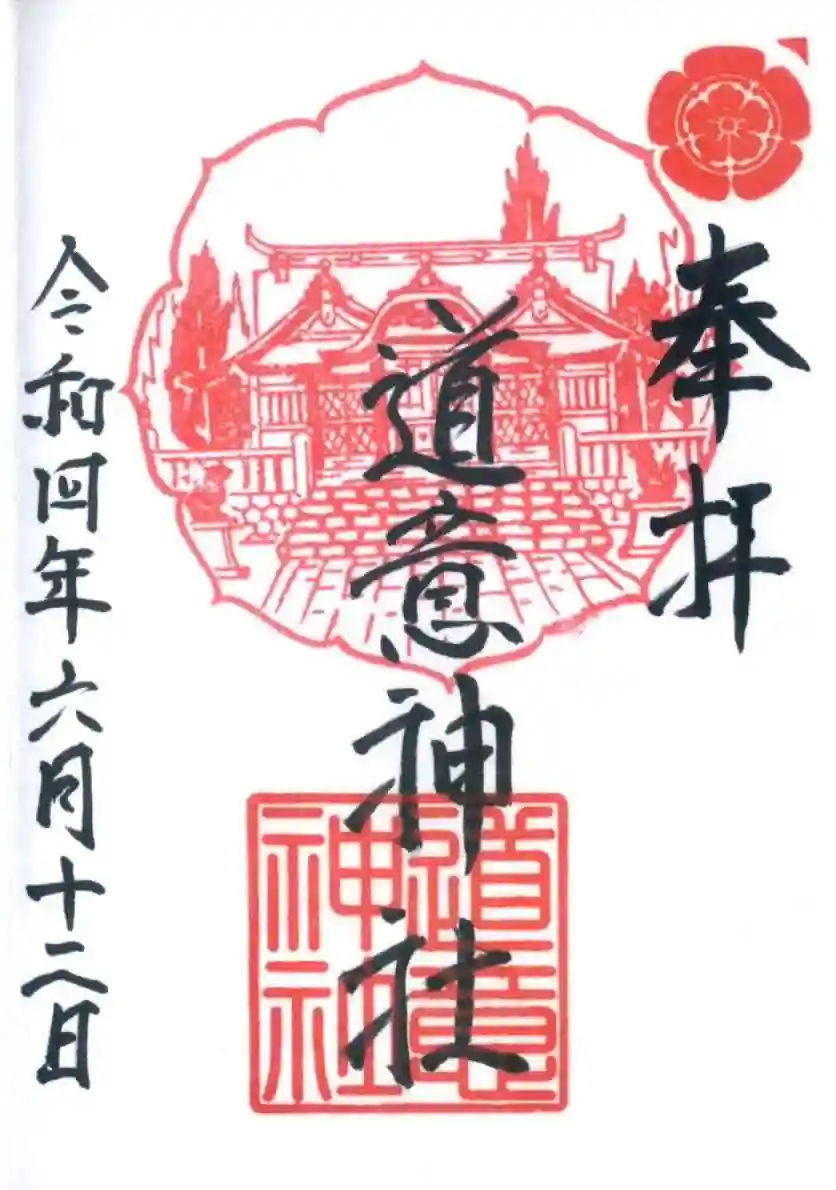 奉拝
道意神社
道意神社
令和四年六月十二日